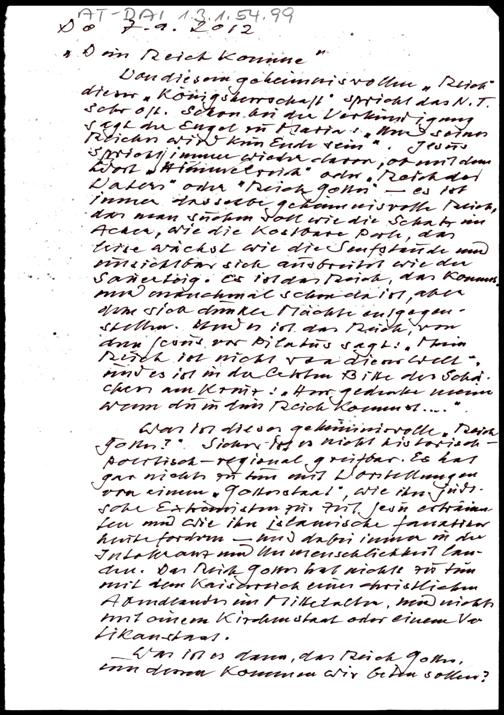 AT-DAI 13.1.54.99
Do 7.9.2012
"Dein Reich Komme"
Von diesem geheimnisvollen "Reich"
dieser "Königsherrschaft" spricht das N.T.
sehr oft. Schon bei der Verkündigung
sagt der Engel zu Maria: "Und seines
Reiches wird kein Ende sein". Jesus
spricht immer wieder davon, ob mit dem
Wort "Himmelreich" oder "Reich des
Vaters" oder "Reich Gottes" — es ist
immer dasselbe geheimnisvolle Reich,
das man suchen soll wie die Schatz im
Acker, wie die Kostbare Perle, das
leise wächst wie die Senfstaude und
unsichtbar sich ausbreitet wie der
Sauerteig. Es ist das Reich, das Kommt
und manchmal schon da ist, aber
dem sich dunkle Mächte entgegen-
stellen. Und es ist das Reich, von
dem Jesus vor Pilatus sagt: "Mein
Reich ist nicht von dieser Welt",
und es ist in der letzten Bitte des Schä-
chers am Kreuz: "Herr gedenke meiner
wenn du in dein Reich Kommst...."
Was ist dieses geheimnisvolle "Reich
Gottes?" Sicher ist es nicht historisch-
politisch-regional greifbar. Es hat
gar nichts zu tun mit Vorstellungen
von einem "Gottesstaat", wie ihn jüdi-
sche Extremisten zur Zeit Jesu erträum-
ten und wie ihn islamische Fanatiker
heute fordern — und dabei immer in der
Intoleranz und Unmenschlichkeit lan-
den. Das Reich Gottes hat nichts zu tun
mit dem Kaiserreich eines christlichen
Abendlandes im Mittelalter, und nichts
mit einem Kirchenstaat oder einem Va-
tikanstaat.
Was ist es dann, das Reich Gottes,
um dessen Kommen wir beten sollen?